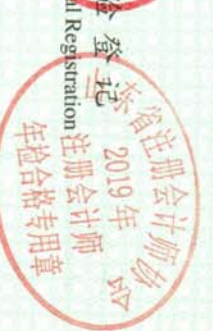 验登记
al Registration
东省注册会计师协会
2019年
注册会计师
年检合格专用章